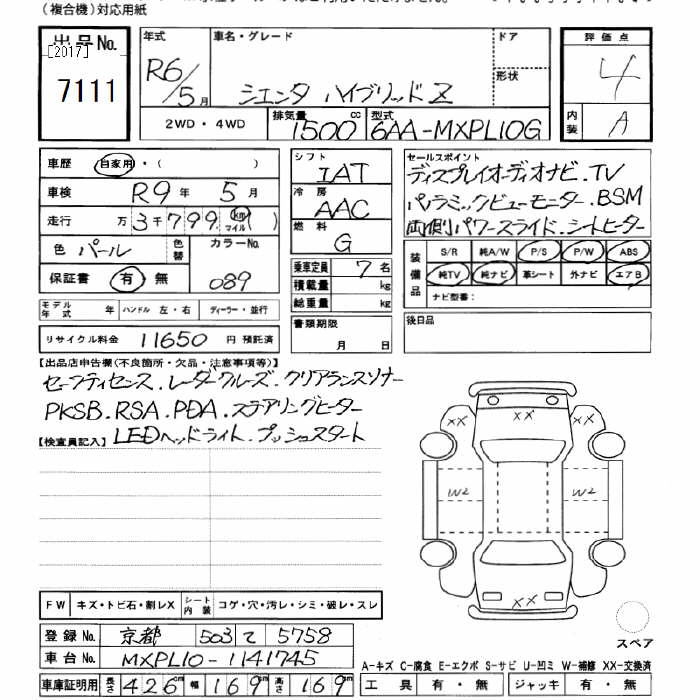 (複合機)対応用紙
出品No.
[2017]
7111
年式
R6/5月
車名・グレード
シエンタ ハイブリッド Z
ドア
形状
評価点
4
内装
A
2WD・4WD
排気量
1500cc
型式
6AA-MXPL10G
車歴
自家用・( )
車検
R9年5月
走行
万3千799(km マイル)
色
パール
色替
カラーNo.
089
保証書
有・無
シフト
IAT
冷房
AAC
燃料
G
乗車定員
7名
積載量
kg
総重量
kg
セールスポイント
ディスプレイオーディオナビ.TV
パノラミックビューモニター.BSM
両側パワースライド.シートヒーター
装備品
S/R 純A/W P/S P/W ABS
純TV 純ナビ 革シート 外ナビ エアB
ナビ型番:
モデル年式
年
ハンドル 左・右
ディーラー・並行
リサイクル料金
11650円 預託済
書類期限
月 日
後日品
【出品店申告欄(不良箇所・欠品・注意事項等)】
セーフティセンス.レーダークルーズ.クリアランスソナー
PKSB.RSA.PDA.ステアリングヒーター
LEDヘッドライト.プッシュスタート
【検査員記入】
XX XX XX
W2 W2
XX
スペア
FW
キズ・トビ石・割レX
シート内装
コゲ・穴・汚レ・シミ・破レ・スレ
登録No.
京都 503 て 5758
車台No.
MXPL10-1141745
車庫証明用
長さ 426cm
幅 169cm
高さ 169cm
A-キズ C-腐食 E-エクボ S-サビ U-凹ミ W-補修 XX-交換済
工具 有・無
ジャッキ 有・無